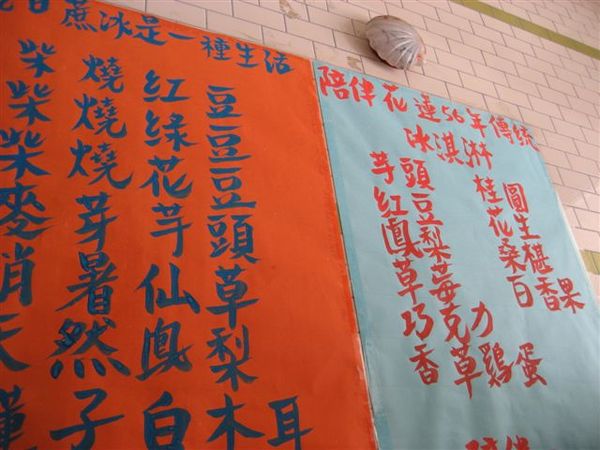 蔗冰是一種生活
柴燒 紅豆
柴燒 綠豆
柴燒 花豆
麥芽 芋頭
消暑 仙草
天然 鳳梨
蓮子 白木耳
陪伴花連56年傳統
冰淇淋
芋頭 桂圓
紅豆 花生
鳳梨 桑椹
草莓 百香果
巧克力
香草鷄蛋